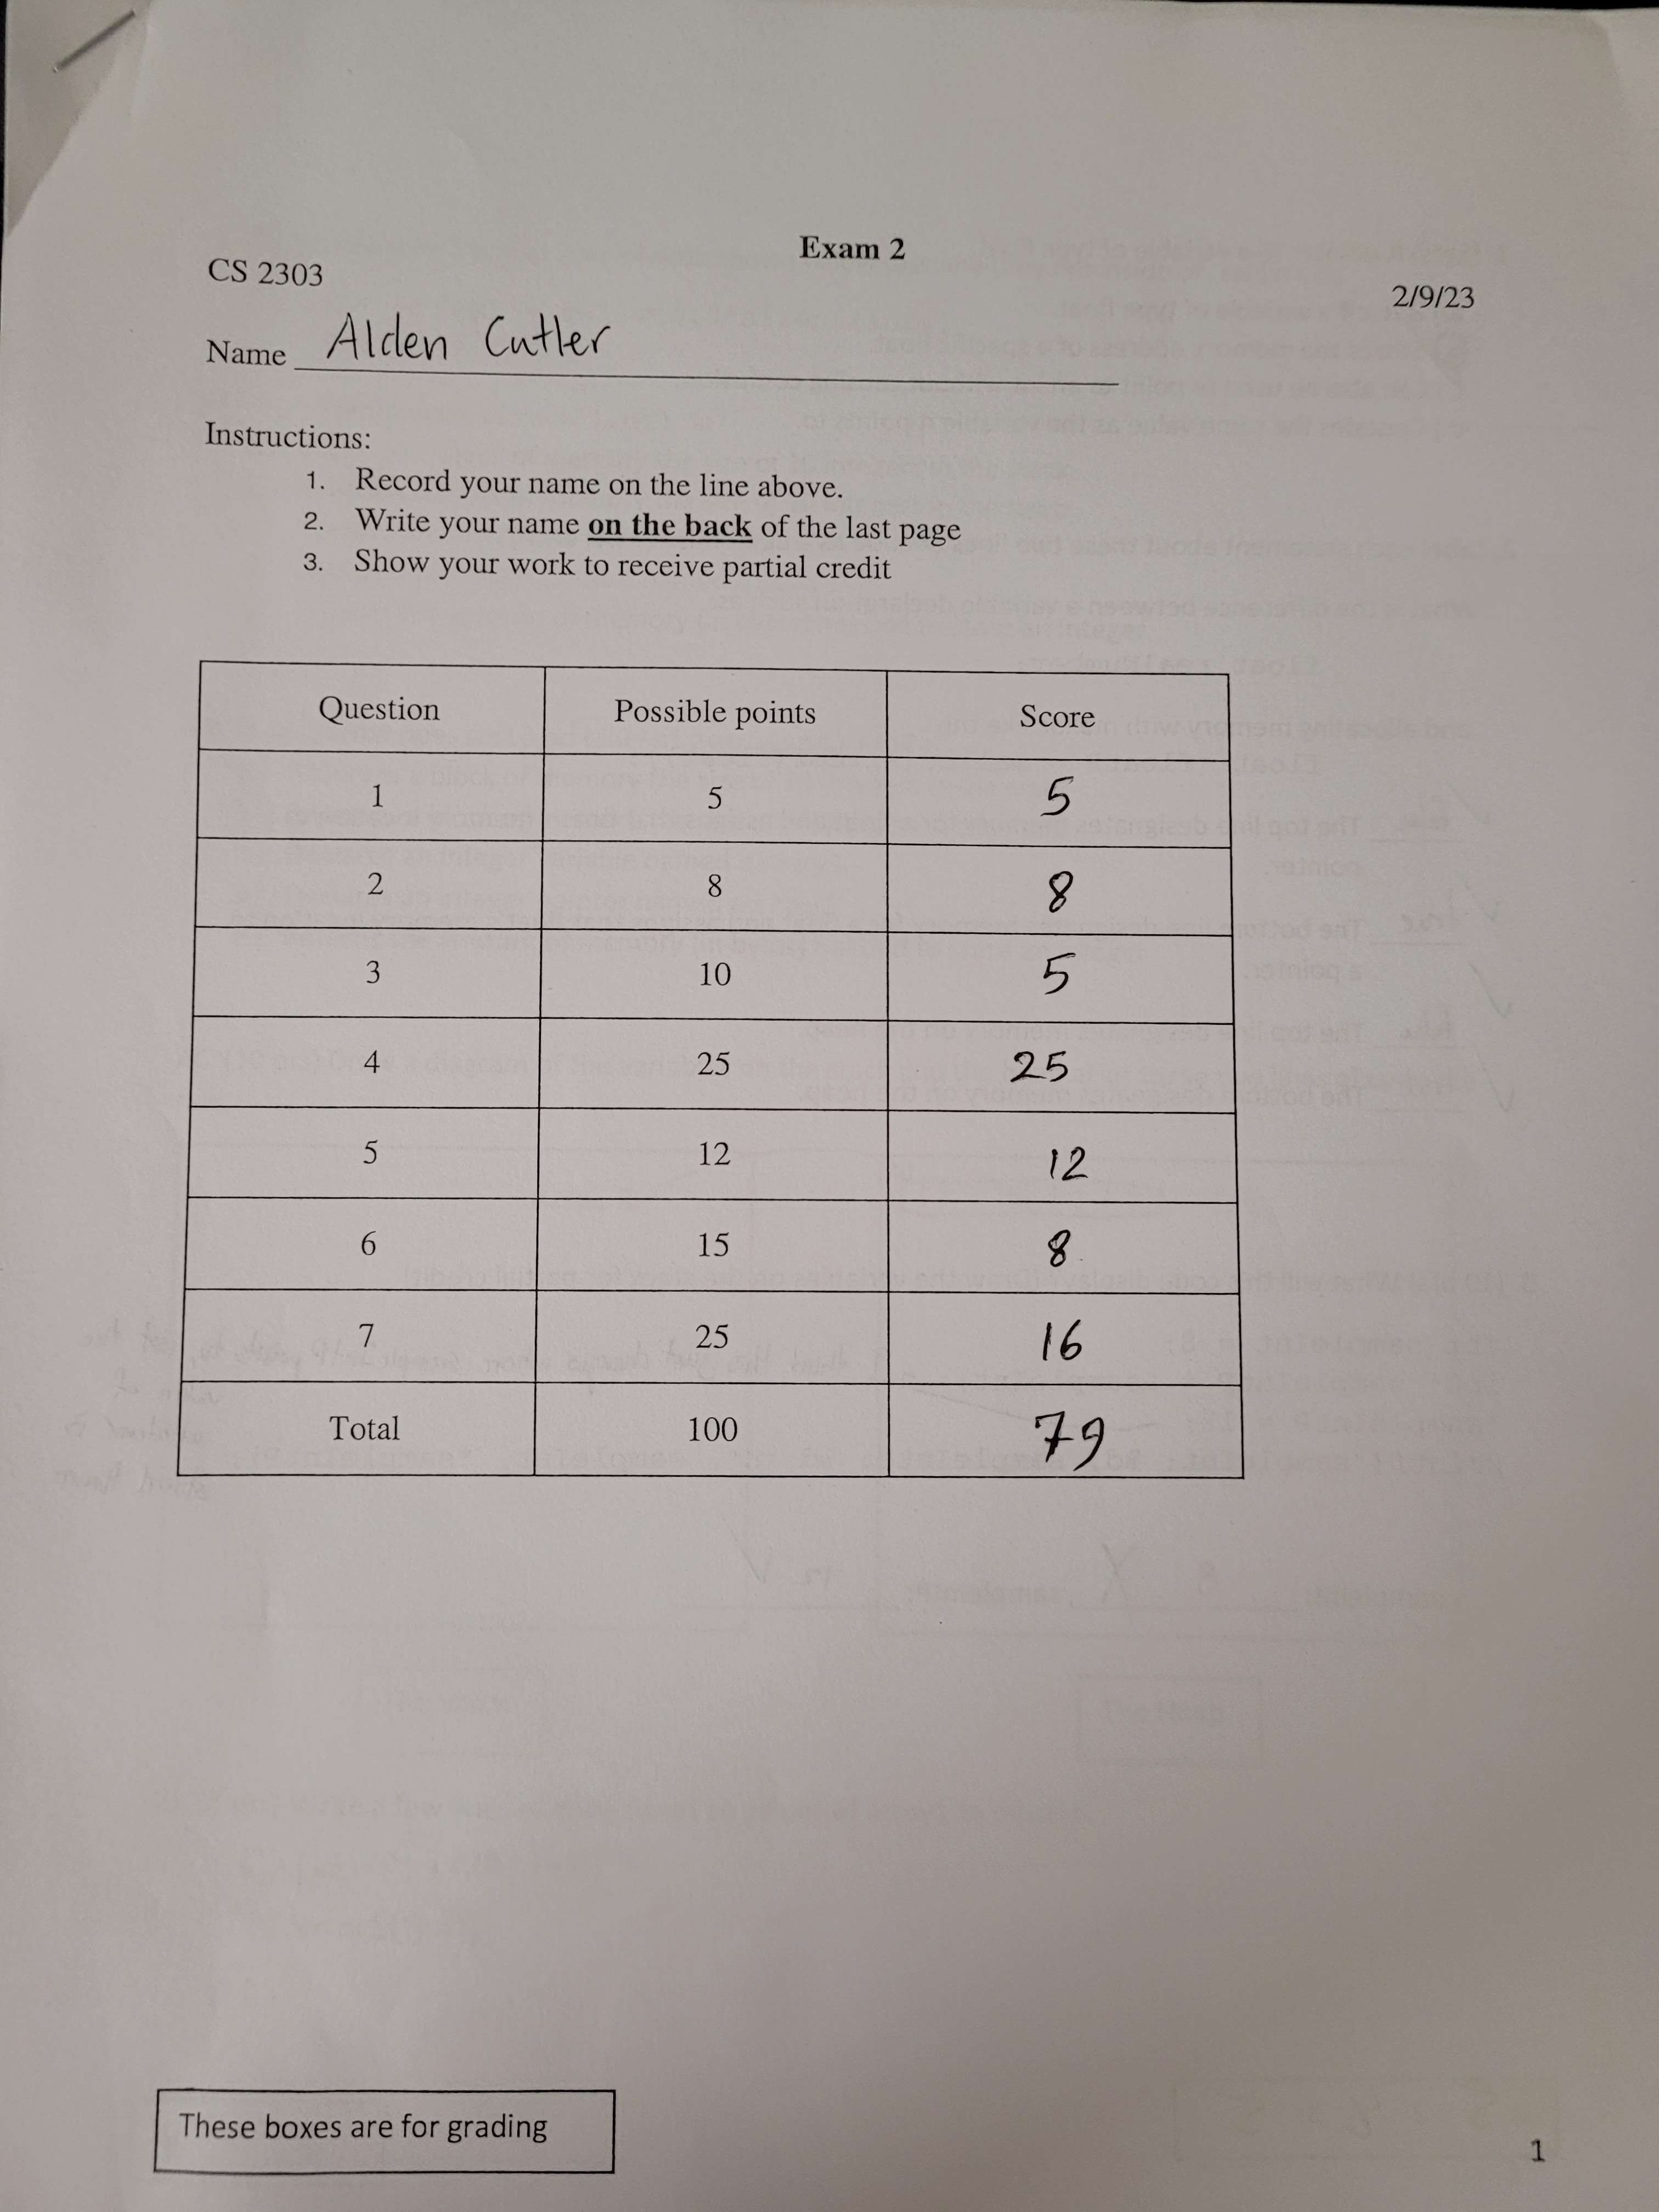 Exam 2
CS 2303
2/9/23
Name Alden Cutler
Instructions:
1. Record your name on the line above.
2. Write your name on the back of the last page
3. Show your work to receive partial credit
Question Possible points Score
1 5 5
2 8 8
3 10 5
4 25 25
5 12 12
6 15 8
7 25 16
Total 100 79
These boxes are for grading
1